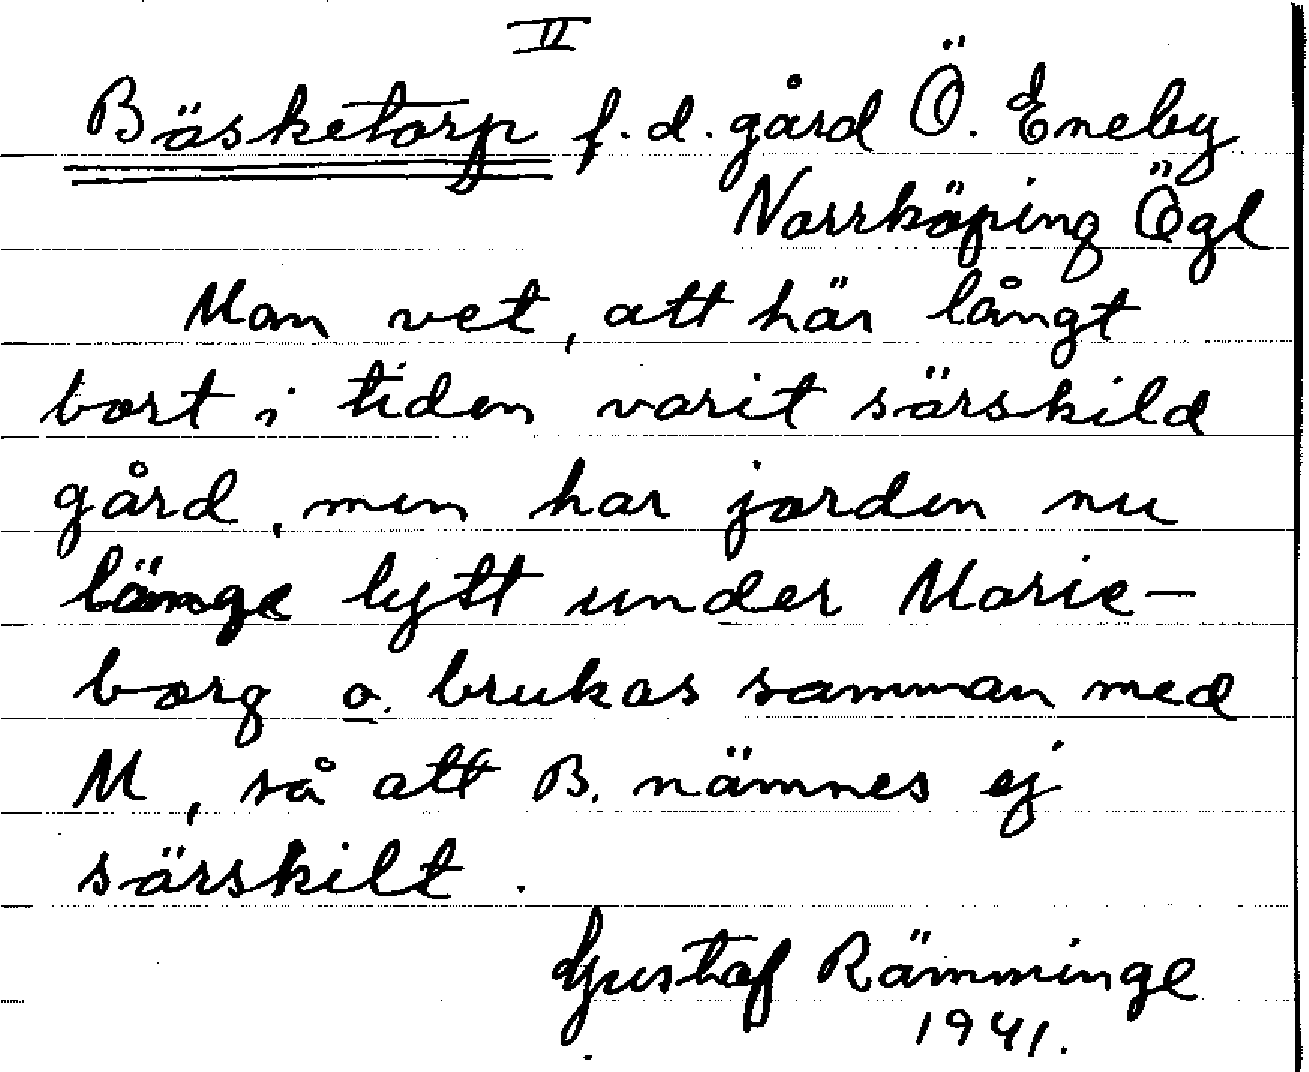 II
Bäsketorp f.d. gård Ö. Eneby
Norrköping Ögl
Man vet, att här långt
bort i tiden varit särskild
gård, men har jorden nu
länge lytt under Marie-
borg o. brukas samman med
M, så att B. nämnes ej
särskilt.
Gustaf Rämminge
1941.